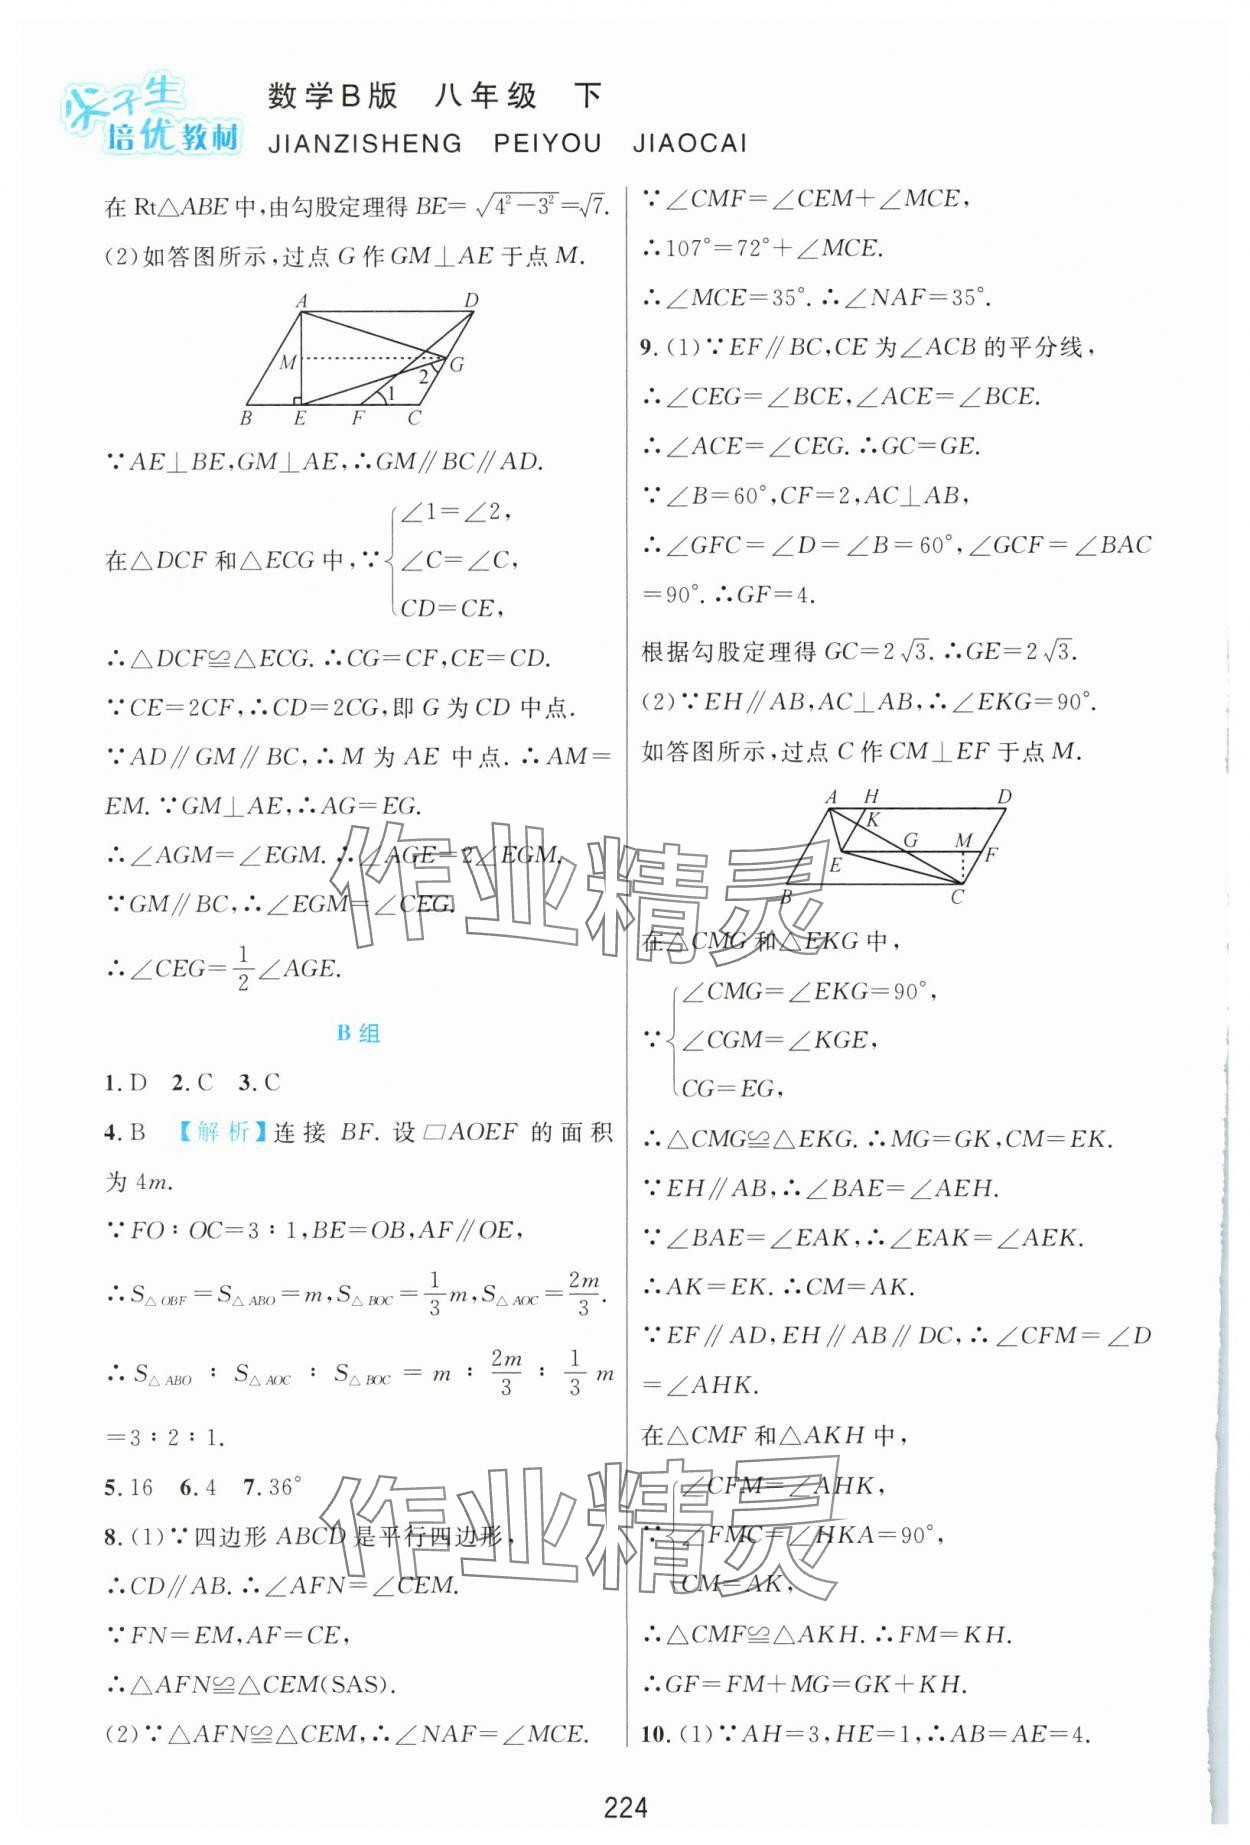 尖子生
培优教材
数学B版 八年级 下
JIANZISHENG PEIYOU JIAOCAI
在 Rt△ABE 中,由勾股定理得 BE=√(4²-3²)=√7.
(2)如答图所示,过点 G 作 GM⊥AE 于点 M.
A D
M G
2
1
B E F C
∵AE⊥BE,GM⊥AE,∴GM∥BC∥AD.
∠1=∠2,
在△DCF 和△ECG 中,∵ ∠C=∠C,
CD=CE,
∴△DCF≌△ECG.∴CG=CF,CE=CD.
∵CE=2CF,∴CD=2CG,即 G 为 CD 中点.
∵AD∥GM∥BC,∴M 为 AE 中点.∴AM=
EM.∵GM⊥AE,∴AG=EG.
∴∠AGM=∠EGM.∴∠AGE=2∠EGM.
∵GM∥BC,∴∠EGM=∠CEG.
∴∠CEG=1/2∠AGE.
B 组
1.D 2.C 3.C
4.B 【解析】连接 BF.设▱AOEF 的面积
为 4m.
∵FO∶OC=3∶1,BE=OB,AF∥OE,
∴S△OBF=S△ABO=m,S△BOC=1/3m,S△AOC=2m/3.
∴S△ABO∶S△AOC∶S△BOC=m∶2m/3∶1/3m
=3∶2∶1.
5.16 6.4 7.36°
8.(1)∵四边形 ABCD 是平行四边形,
∴CD∥AB.∴∠AFN=∠CEM.
∵FN=EM,AF=CE,
∴△AFN≌△CEM(SAS).
(2)∵△AFN≌△CEM,∴∠NAF=∠MCE.
∵∠CMF=∠CEM+∠MCE,
∴107°=72°+∠MCE.
∴∠MCE=35°.∴∠NAF=35°.
9.(1)∵EF∥BC,CE 为∠ACB 的平分线,
∴∠CEG=∠BCE,∠ACE=∠BCE.
∴∠ACE=∠CEG.∴GC=GE.
∵∠B=60°,CF=2,AC⊥AB,
∴∠GFC=∠D=∠B=60°,∠GCF=∠BAC
=90°.∴GF=4.
根据勾股定理得 GC=2√3.∴GE=2√3.
(2)∵EH∥AB,AC⊥AB,∴∠EKG=90°.
如答图所示,过点 C 作 CM⊥EF 于点 M.
A H D
K
G M
E F
B C
在△CMG 和△EKG 中,
∠CMG=∠EKG=90°,
∵ ∠CGM=∠KGE,
CG=EG,
∴△CMG≌△EKG.∴MG=GK,CM=EK.
∵EH∥AB,∴∠BAE=∠AEH.
∵∠BAE=∠EAK,∴∠EAK=∠AEK.
∴AK=EK.∴CM=AK.
∵EF∥AD,EH∥AB∥DC,∴∠CFM=∠D
=∠AHK.
在△CMF 和△AKH 中,
∠CFM=∠AHK,
∵ ∠FMC=∠HKA=90°,
CM=AK,
∴△CMF≌△AKH.∴FM=KH.
∴GF=FM+MG=GK+KH.
10.(1)∵AH=3,HE=1,∴AB=AE=4.
作业精灵
作业精灵
224